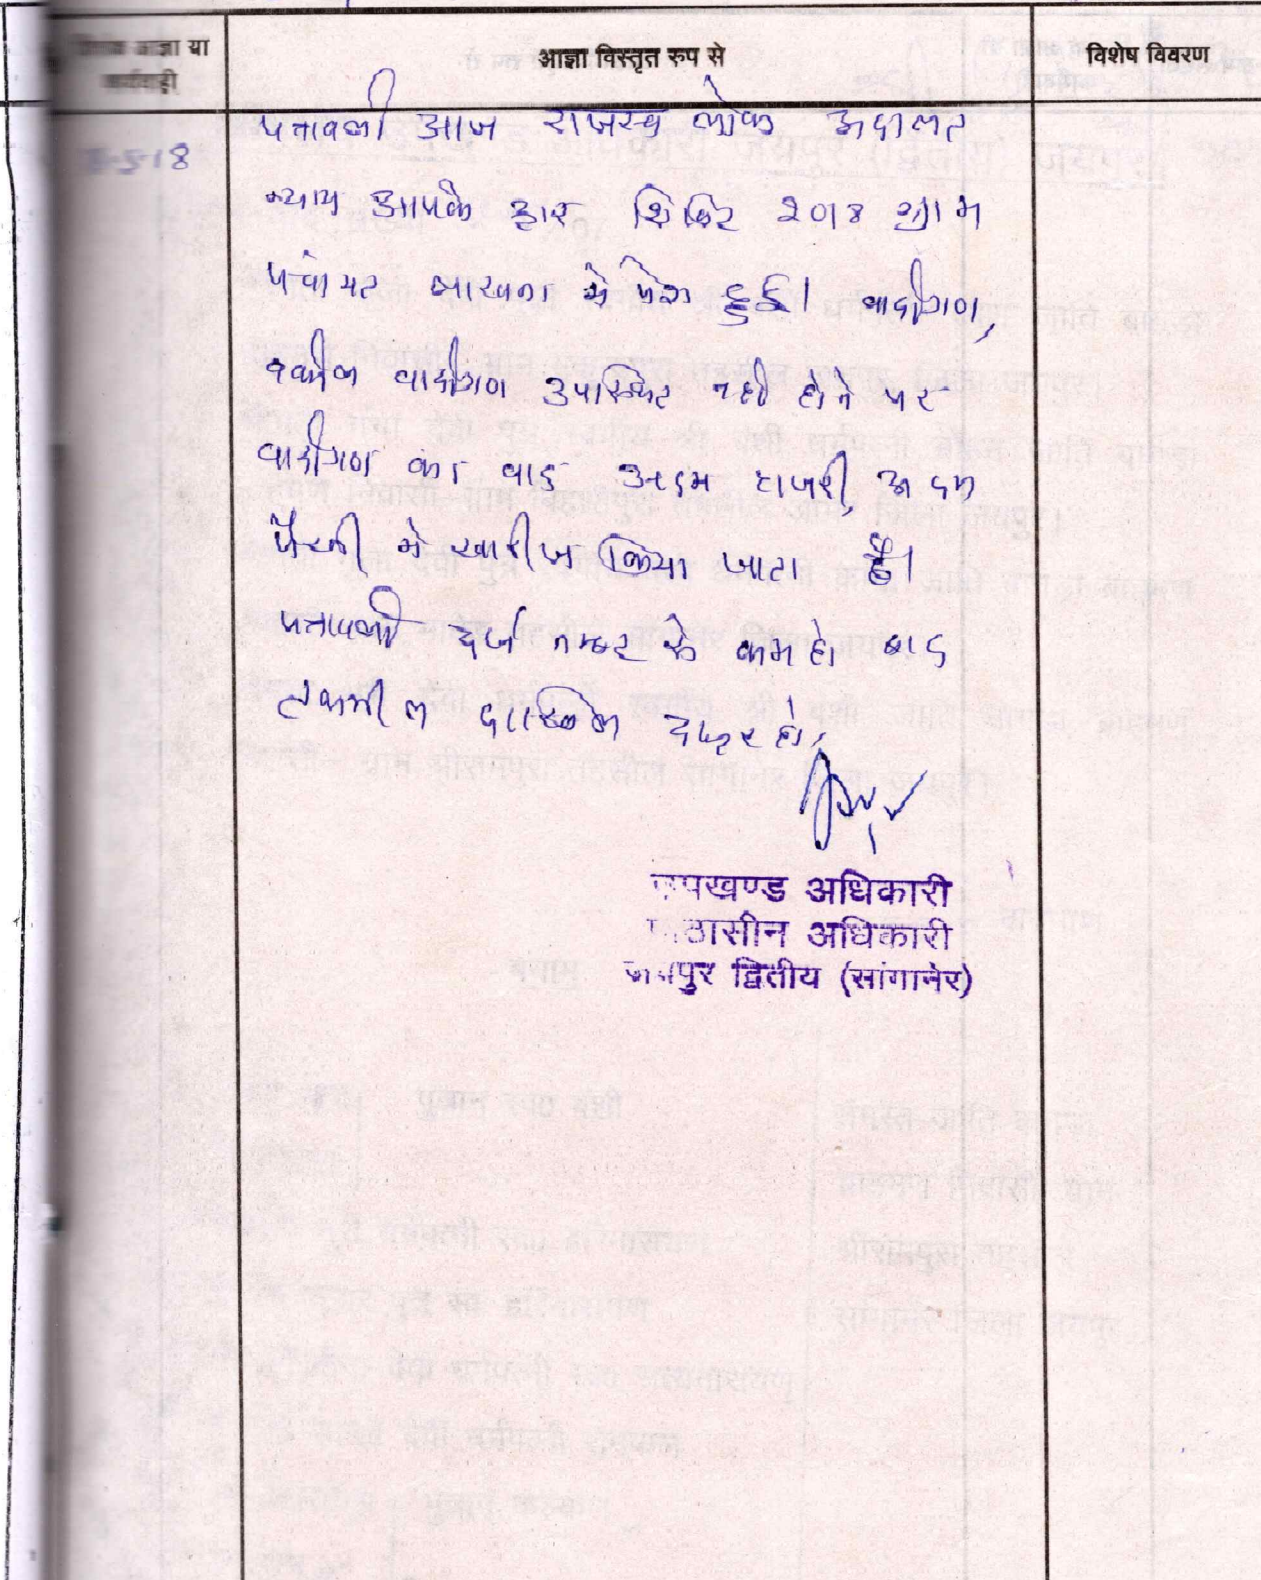 आज्ञा या
कार्यवाही
आज्ञा विस्तृत रुप से
विशेष विवरण
5-18
पत्रावली आज राजस्व लोक अदालत
न्याय आपके द्वार शिविर 2018 ग्राम
पंचायत में पेश हुई। वादीगण,
वकील वादीगण उपस्थित नही होने पर
वादीगण का वाद अदम हाजरी, अदम
पैरवी मे खारीज किया जाता है।
पत्रावली दर्ज नम्बर से कम हो बाद
तकमील दाखिल दफ्तर हो।
उपखण्ड अधिकारी
पीठासीन अधिकारी
जयपुर द्वितीय (सांगानेर)